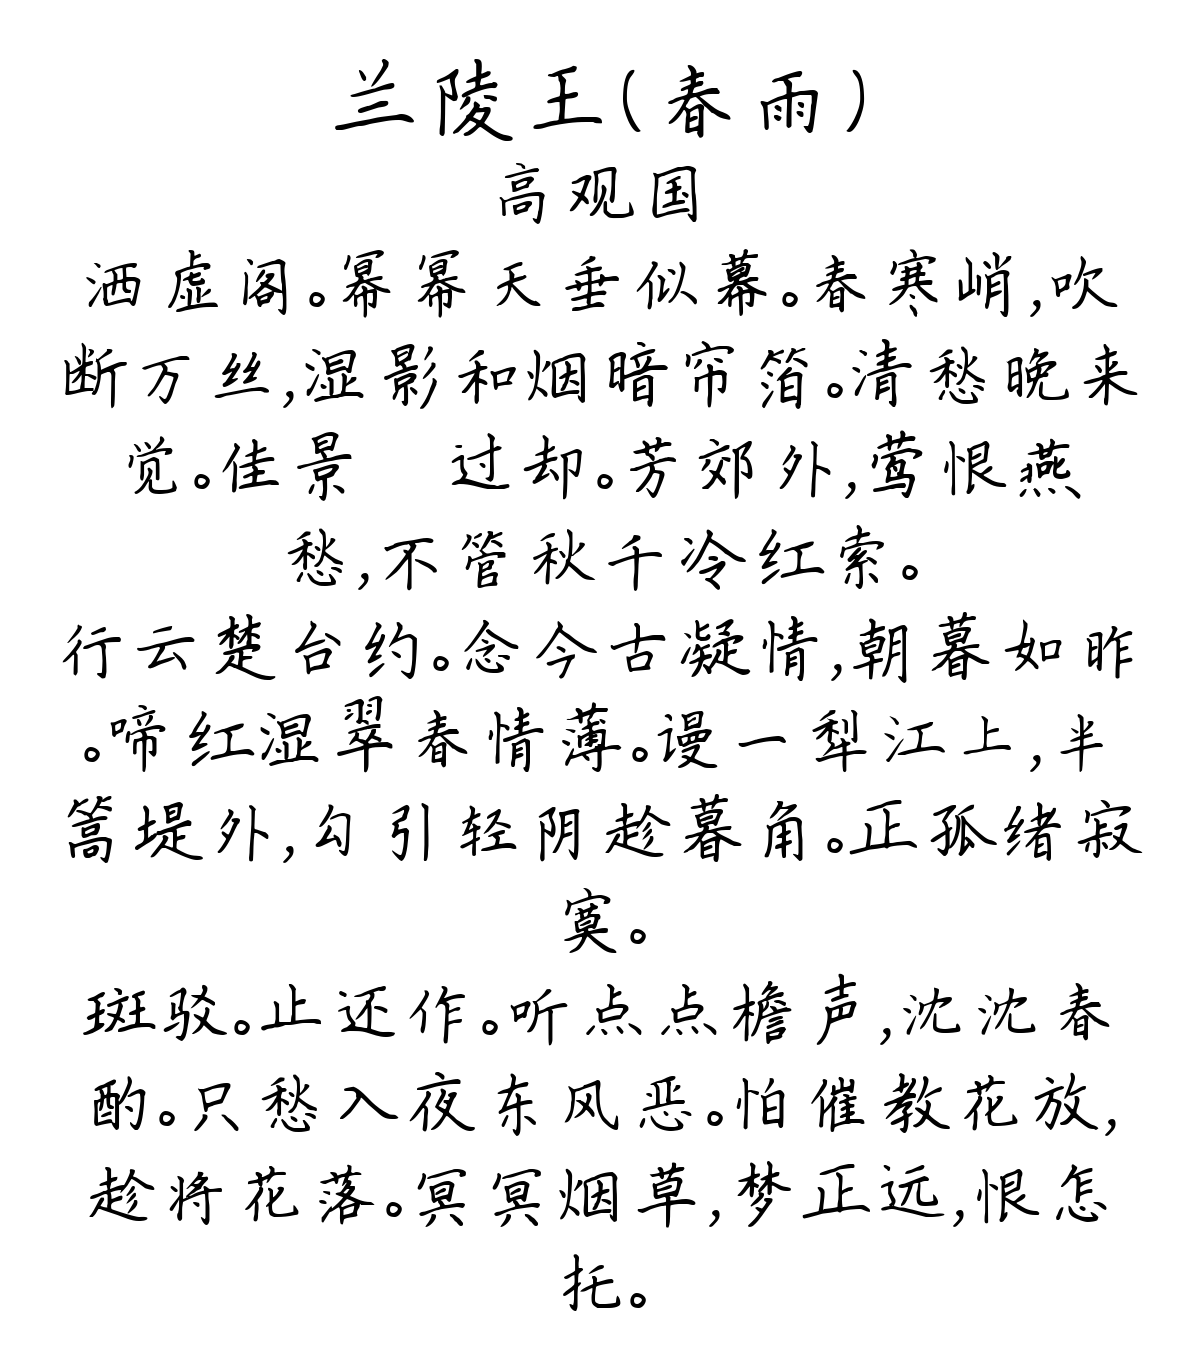 兰陵王(春雨)
高观国
洒虚阁。幂幂天垂似幕。春寒峭,吹
断万丝,湿影和烟暗帘箔。清愁晚来
觉。佳景　过却。芳郊外,莺恨燕
愁,不管秋千冷红索。
行云楚台约。念今古凝情,朝暮如昨
。啼红湿翠春情薄。谩一犁江上,半
篙堤外,勾引轻阴趁暮角。正孤绪寂
寞。
斑驳。止还作。听点点檐声,沈沈春
酌。只愁入夜东风恶。怕催教花放,
趁将花落。冥冥烟草,梦正远,恨怎
托。